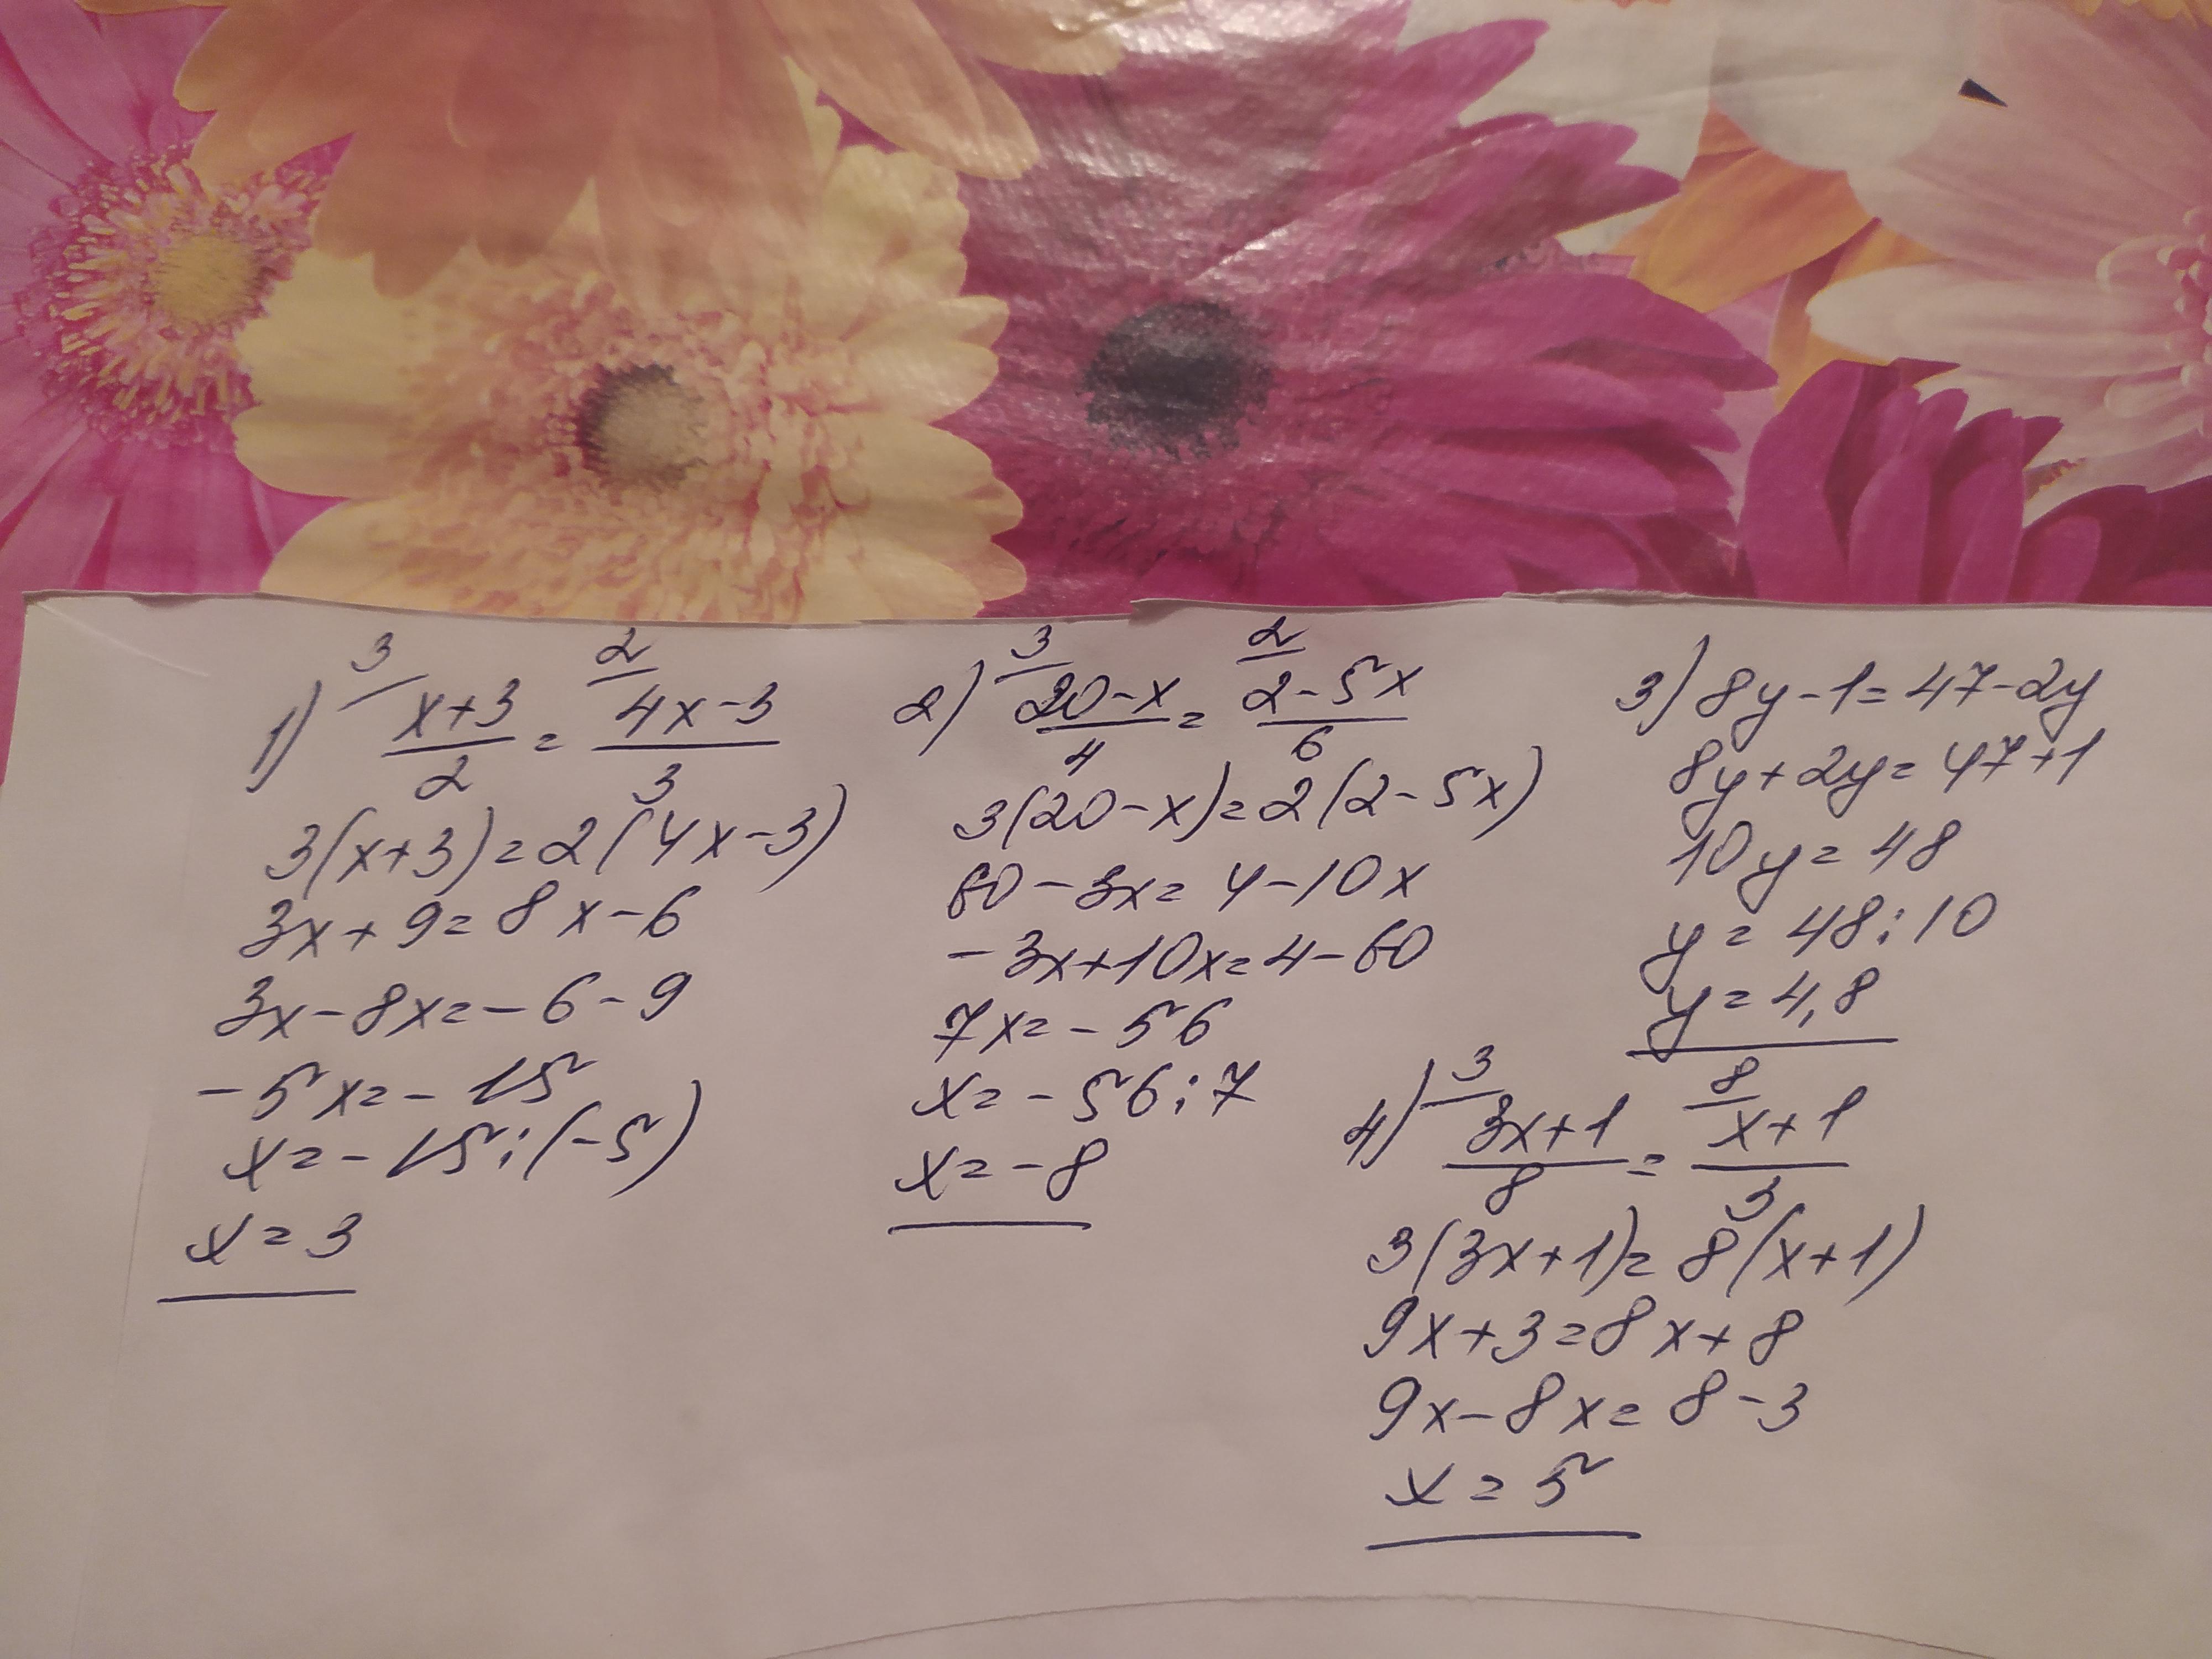 1) 3/ x+3/2 = 2/ 4x-3/3
3(x+3)=2(4x-3)
3x+9=8x-6
3x-8x=-6-9
-5x=-15
x=-15:(-5)
x=3
2) 3/ 20-x/4 = 2/ 2-5x/6
3(20-x)=2(2-5x)
60-3x=4-10x
-3x+10x=4-60
7x=-56
x=-56:7
x=-8
3) 8y-1=47-2y
8y+2y=47+1
10y=48
y=48:10
y=4,8
4) 3/ 3x+1/8 = 8/ x+1/3
3(3x+1)=8(x+1)
9x+3=8x+8
9x-8x=8-3
x=5